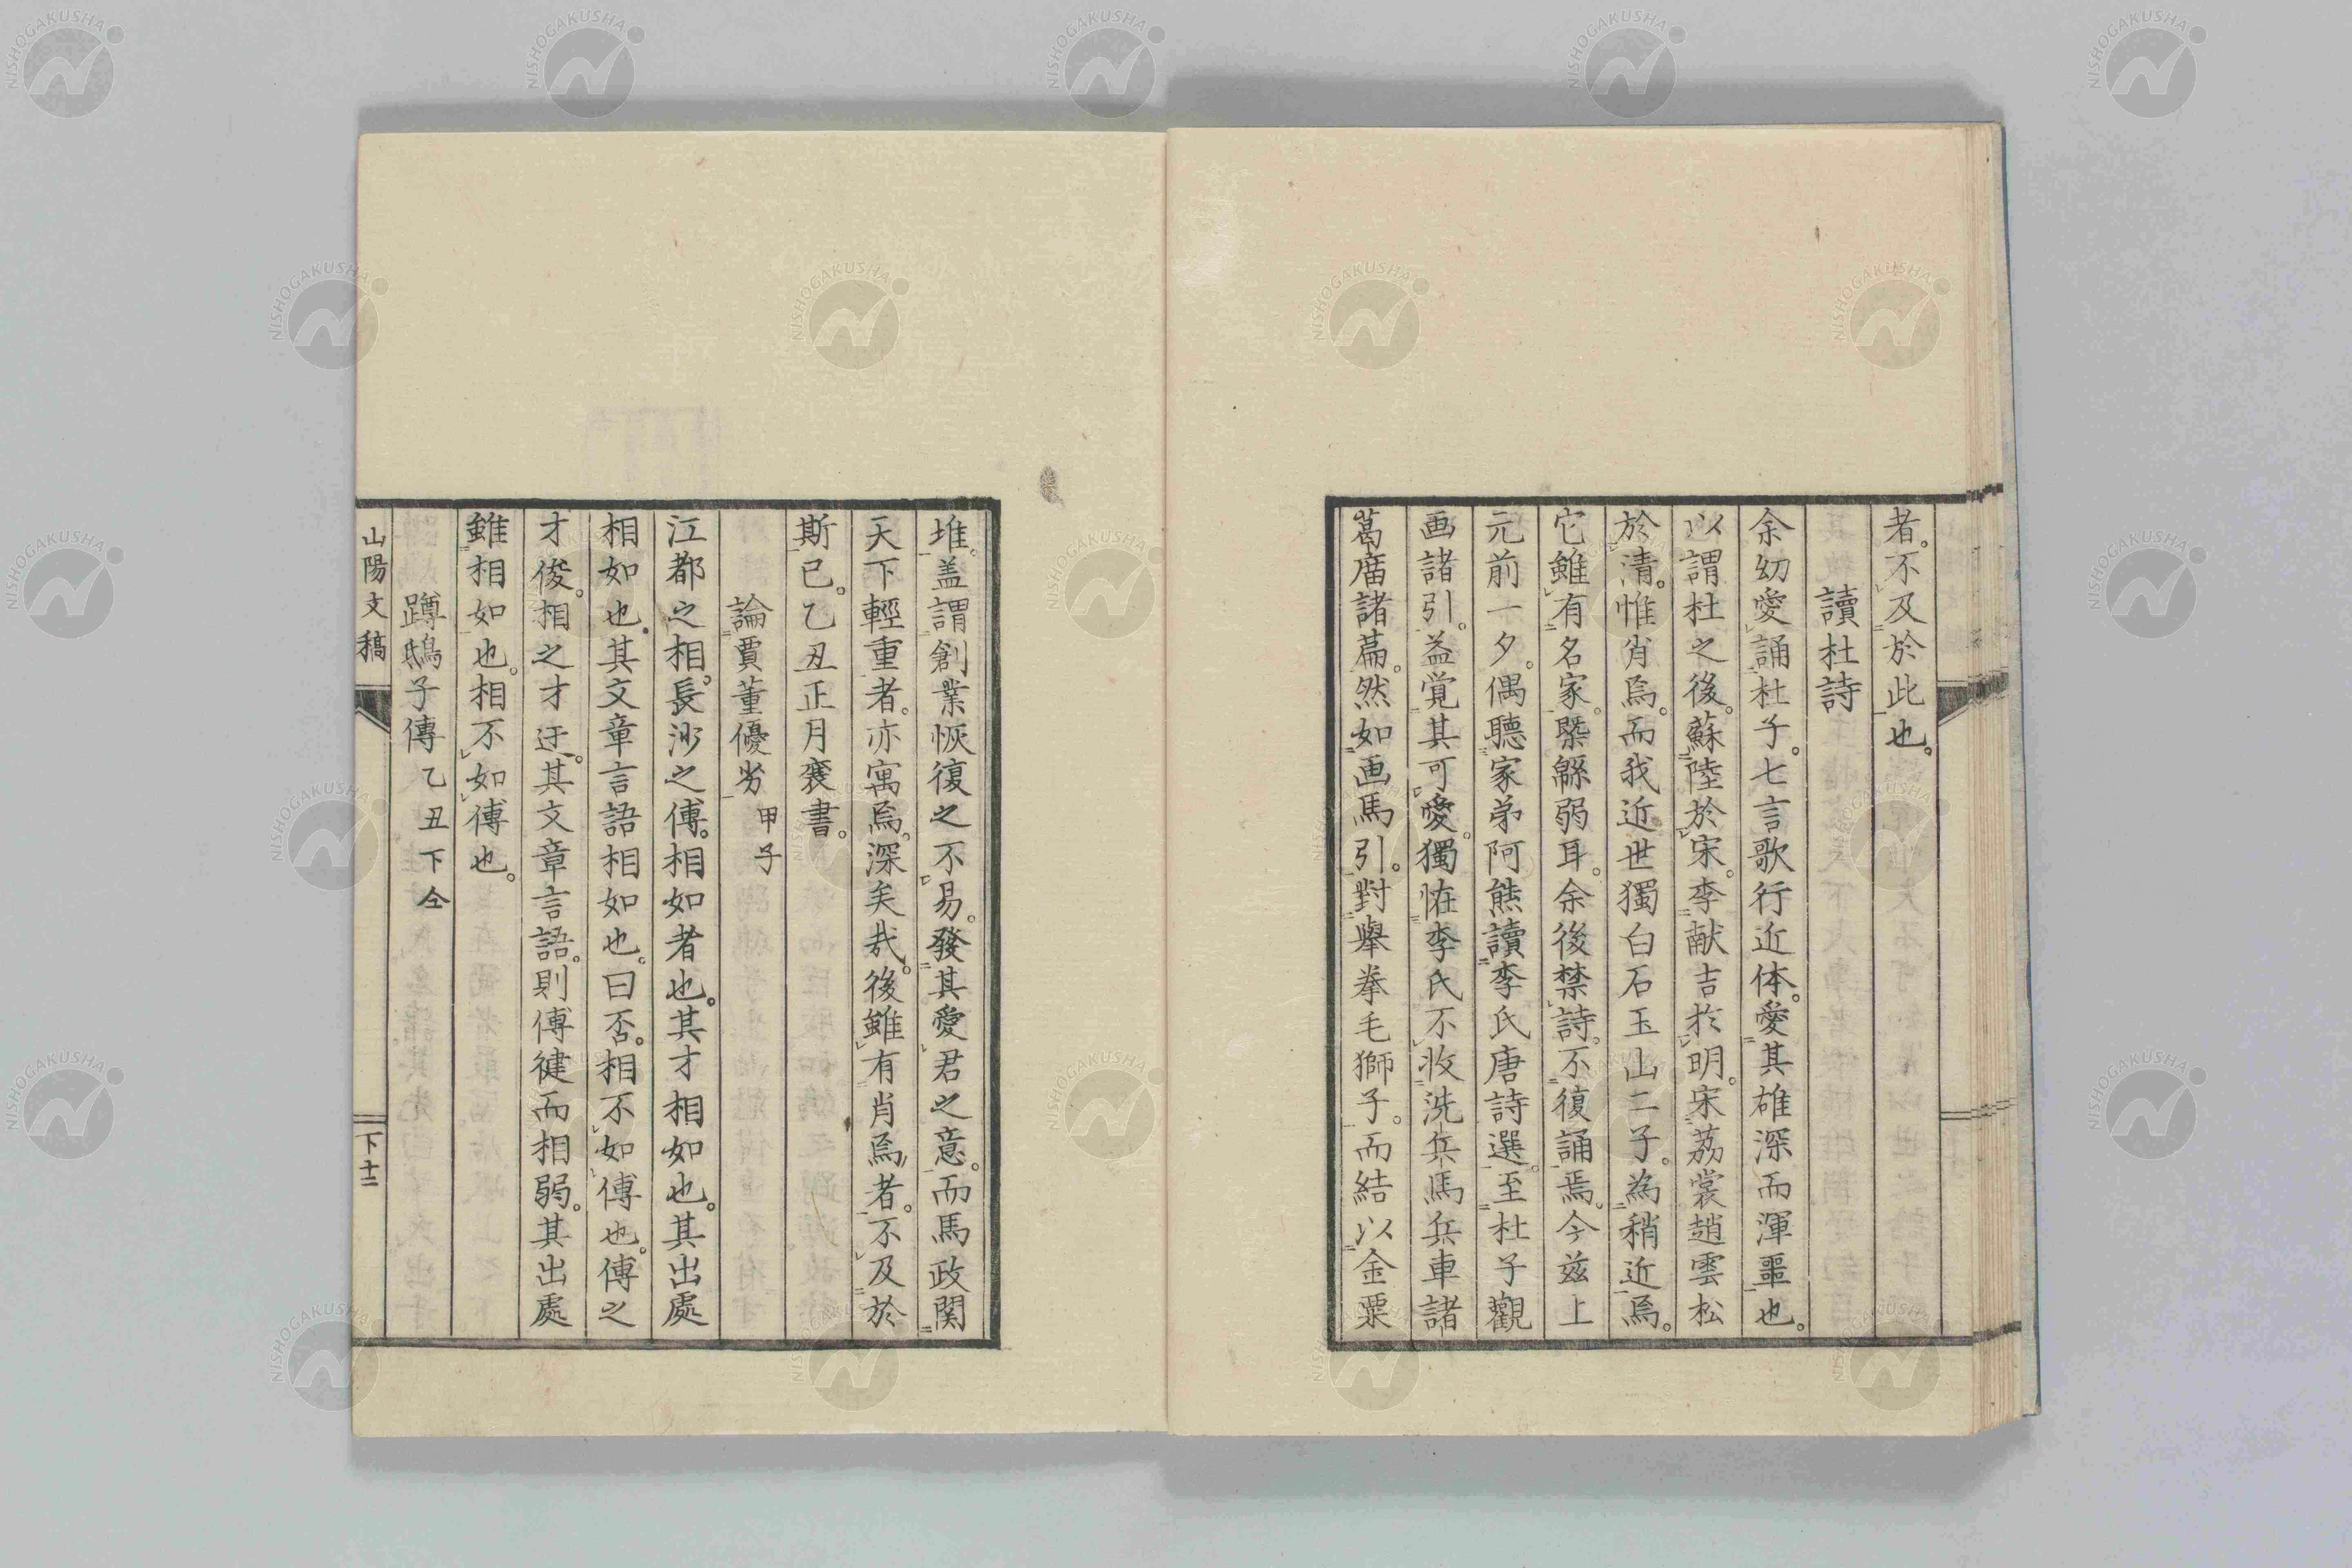 者。不及於此也。
讀杜詩
余幼愛誦杜子。七言歌行近体。愛其雄深而渾噩也。
以謂杜之後。蘇陸於宋。李献吉於明。宋荔裳趙雲松
於清。惟肖焉。而我近世獨白石玉山二子。為稍近焉。
它雖有名家。槩緜弱耳。余後禁詩。不復誦焉。今茲上
元前一夕。偶聽家弟阿熊讀李氏唐詩選。至杜子觀
画諸引。益覚其可愛。獨恠李氏不收洗兵馬兵車諸
葛庿諸篇。然如画馬引。對舉拳毛獅子。而結以金粟
堆。盖謂創業恢復之不易。發其愛君之意。而馬政関
天下輕重者。亦寓焉。深矣哉。後雖有肖焉者。不及於
斯已。乙丑正月襄書。
論賈董優劣 甲子
江都之相。長沙之傅。相如者也。其才相如也。其出處
相如也。其文章言語相如也。曰否。相不如傅也。傅之
才俊。相之才迂。其文章言語。則傅健而相弱。其出處
雖相如也。相不如傅也。
蹲鴟子傳 乙丑下仝
山陽文稿
下十二
NISHOGAKUSHA